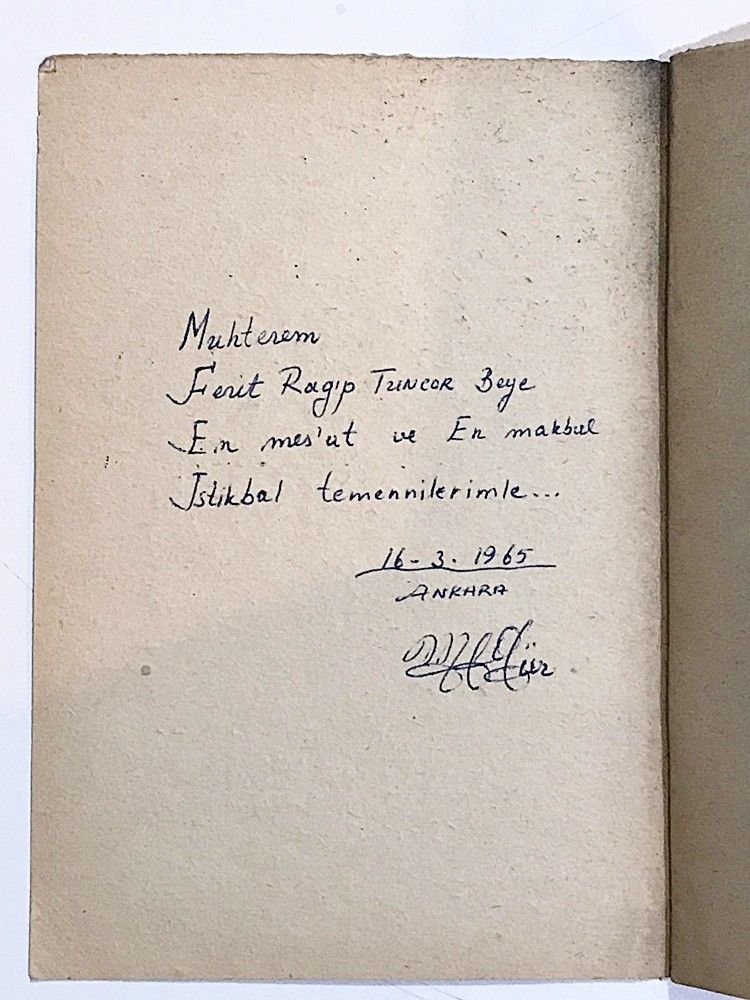 Muhterem
Ferit Ragıp TUNCOR Beye
En mes'ut ve En makbul
İstikbal temennilerimle...
16-3.1965
ANKARA